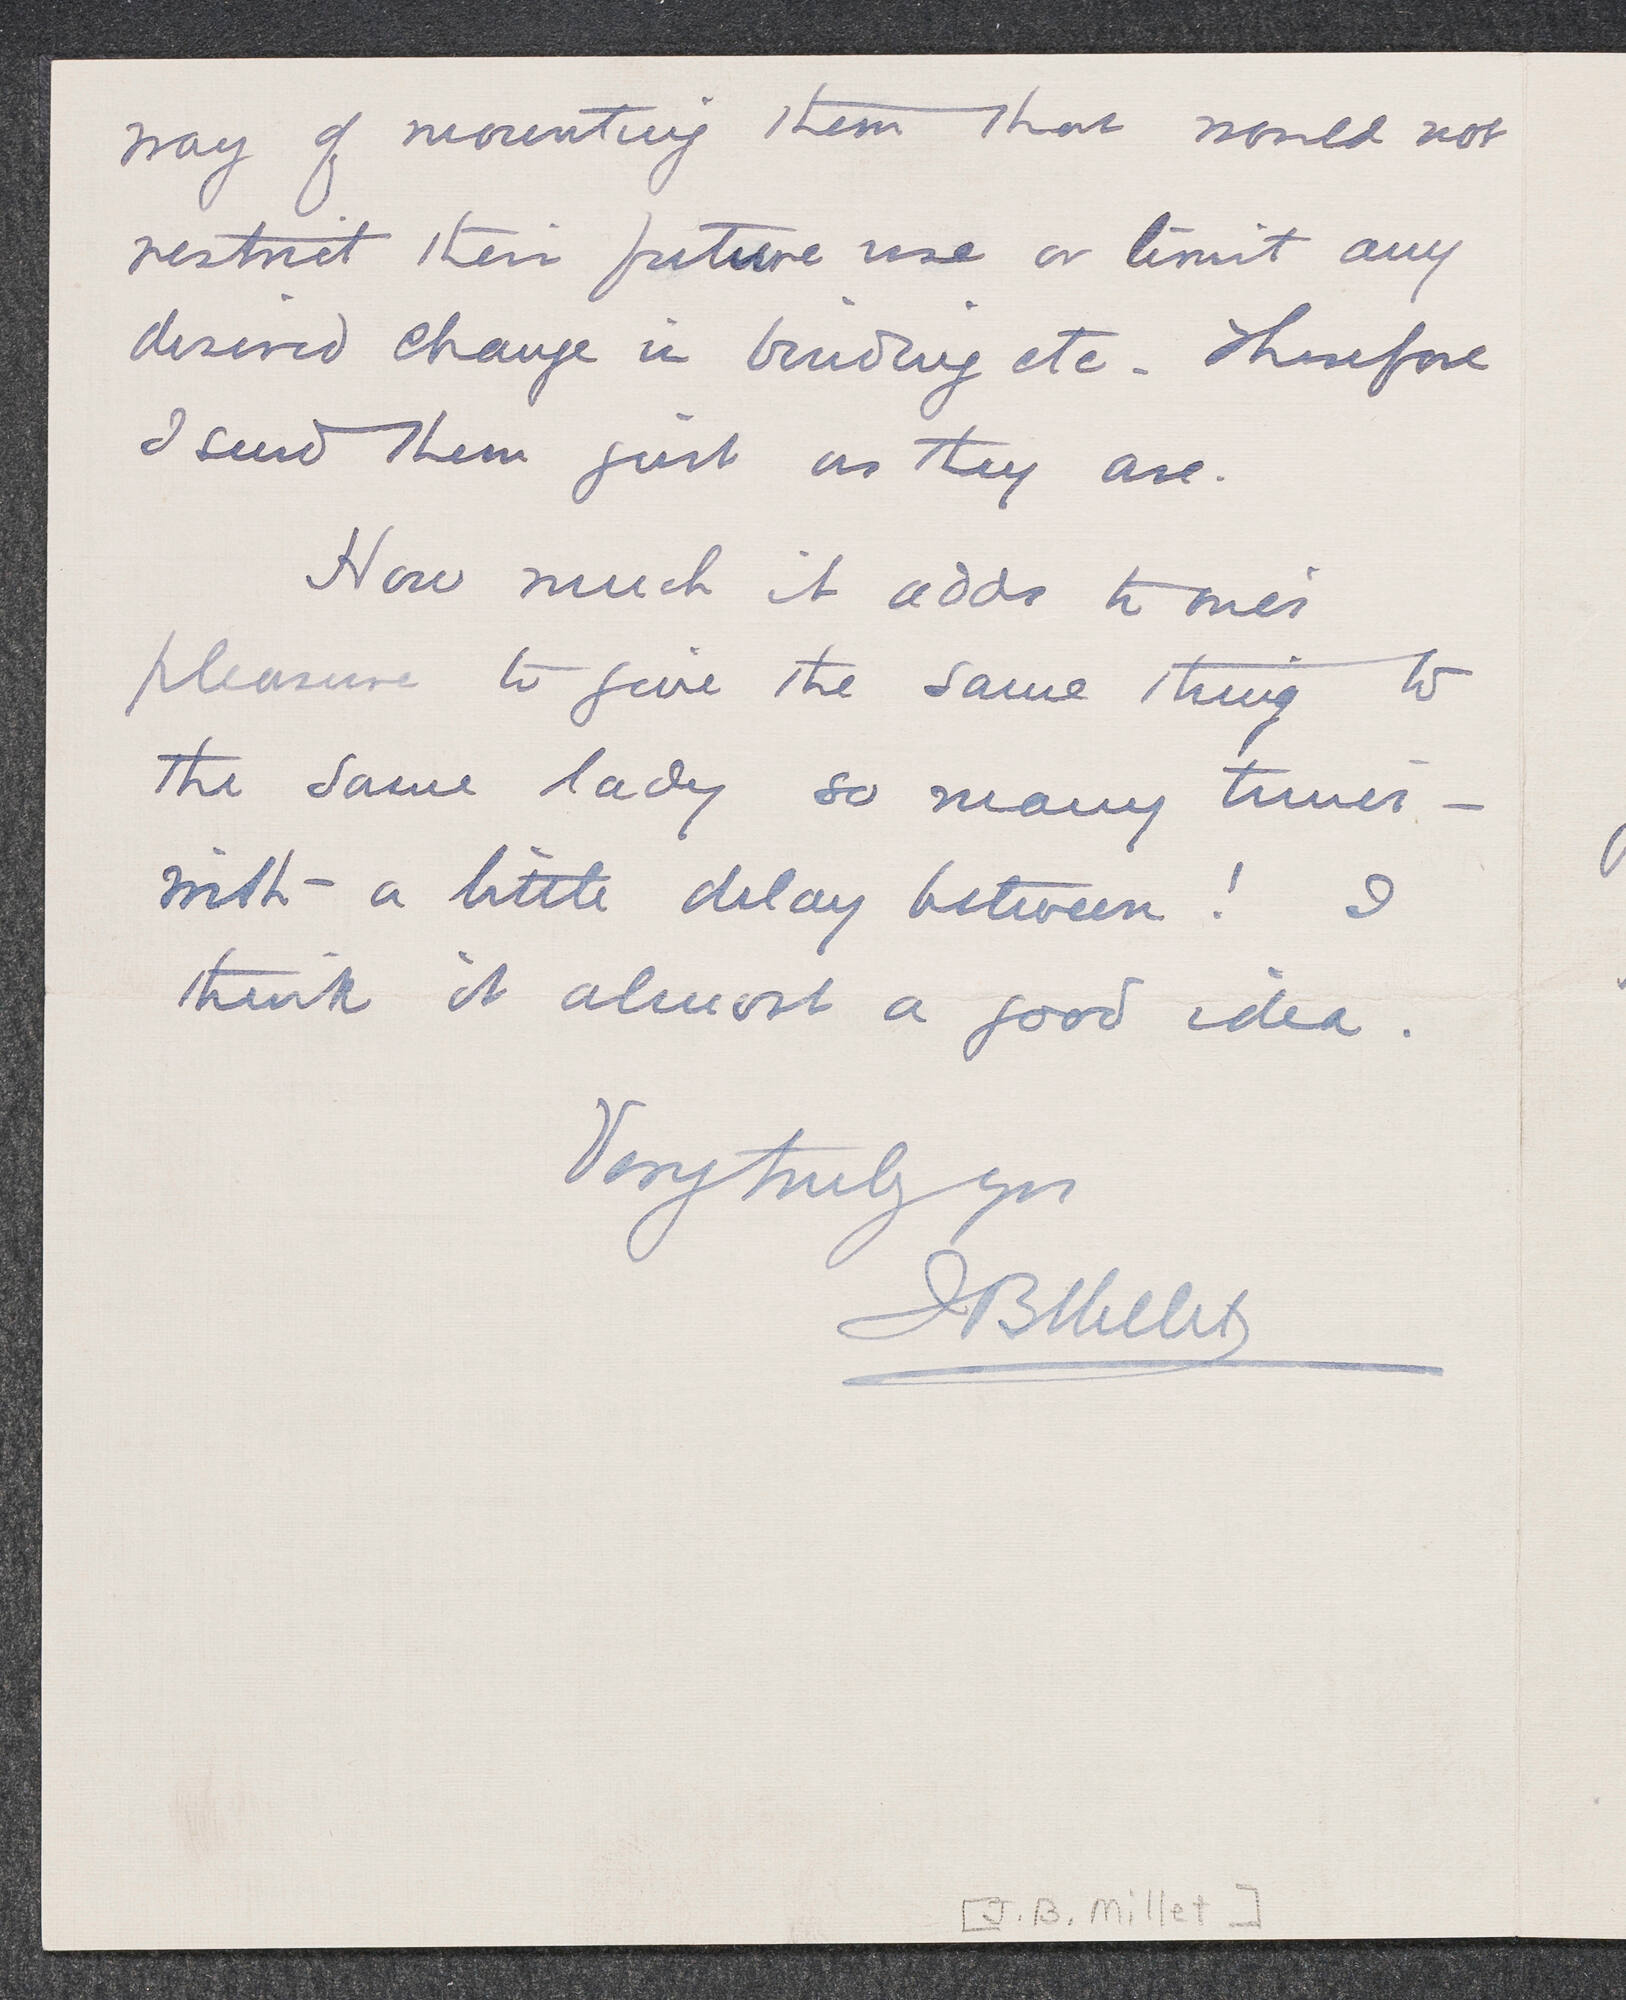 way of mounting them that would not
restrict their future use or limit any
desired change in binding etc. Therefore
I send them just as they are.
How much it adds to one's
pleasure to give the same thing to
the same lady so many times -
with - a little delay between! I
think it almost a good idea.
Very truly yrs
JBMillet
[J.B. Millet]